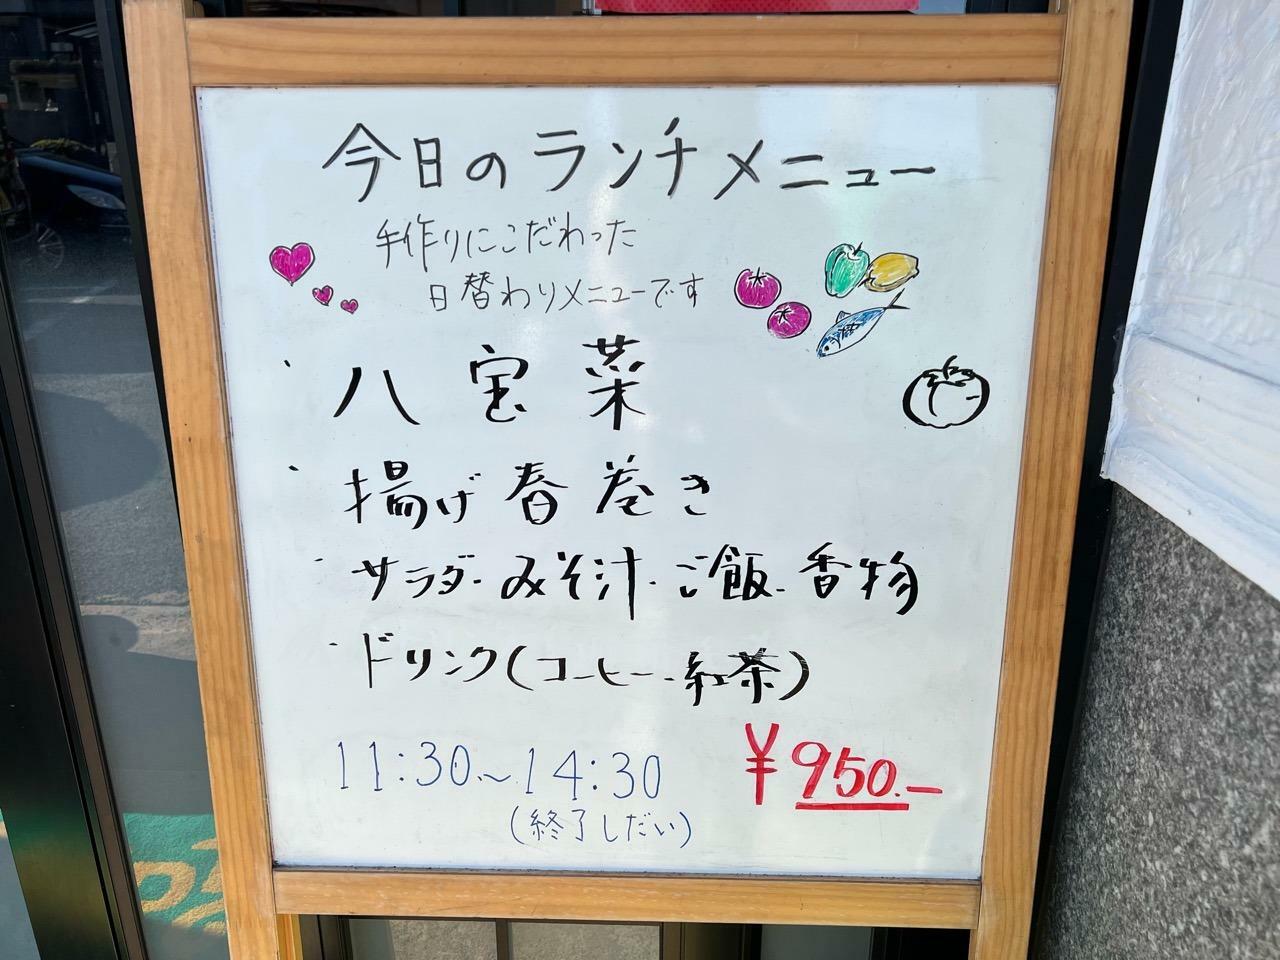 今日のランチメニュー
手作りにこだわった
日替わりメニューです
・八宝菜
・揚げ春巻き
・サラダ・みそ汁・ご飯・香物
・ドリンク(コーヒー・紅茶)
11:30~14:30
(終了しだい)
¥950.-